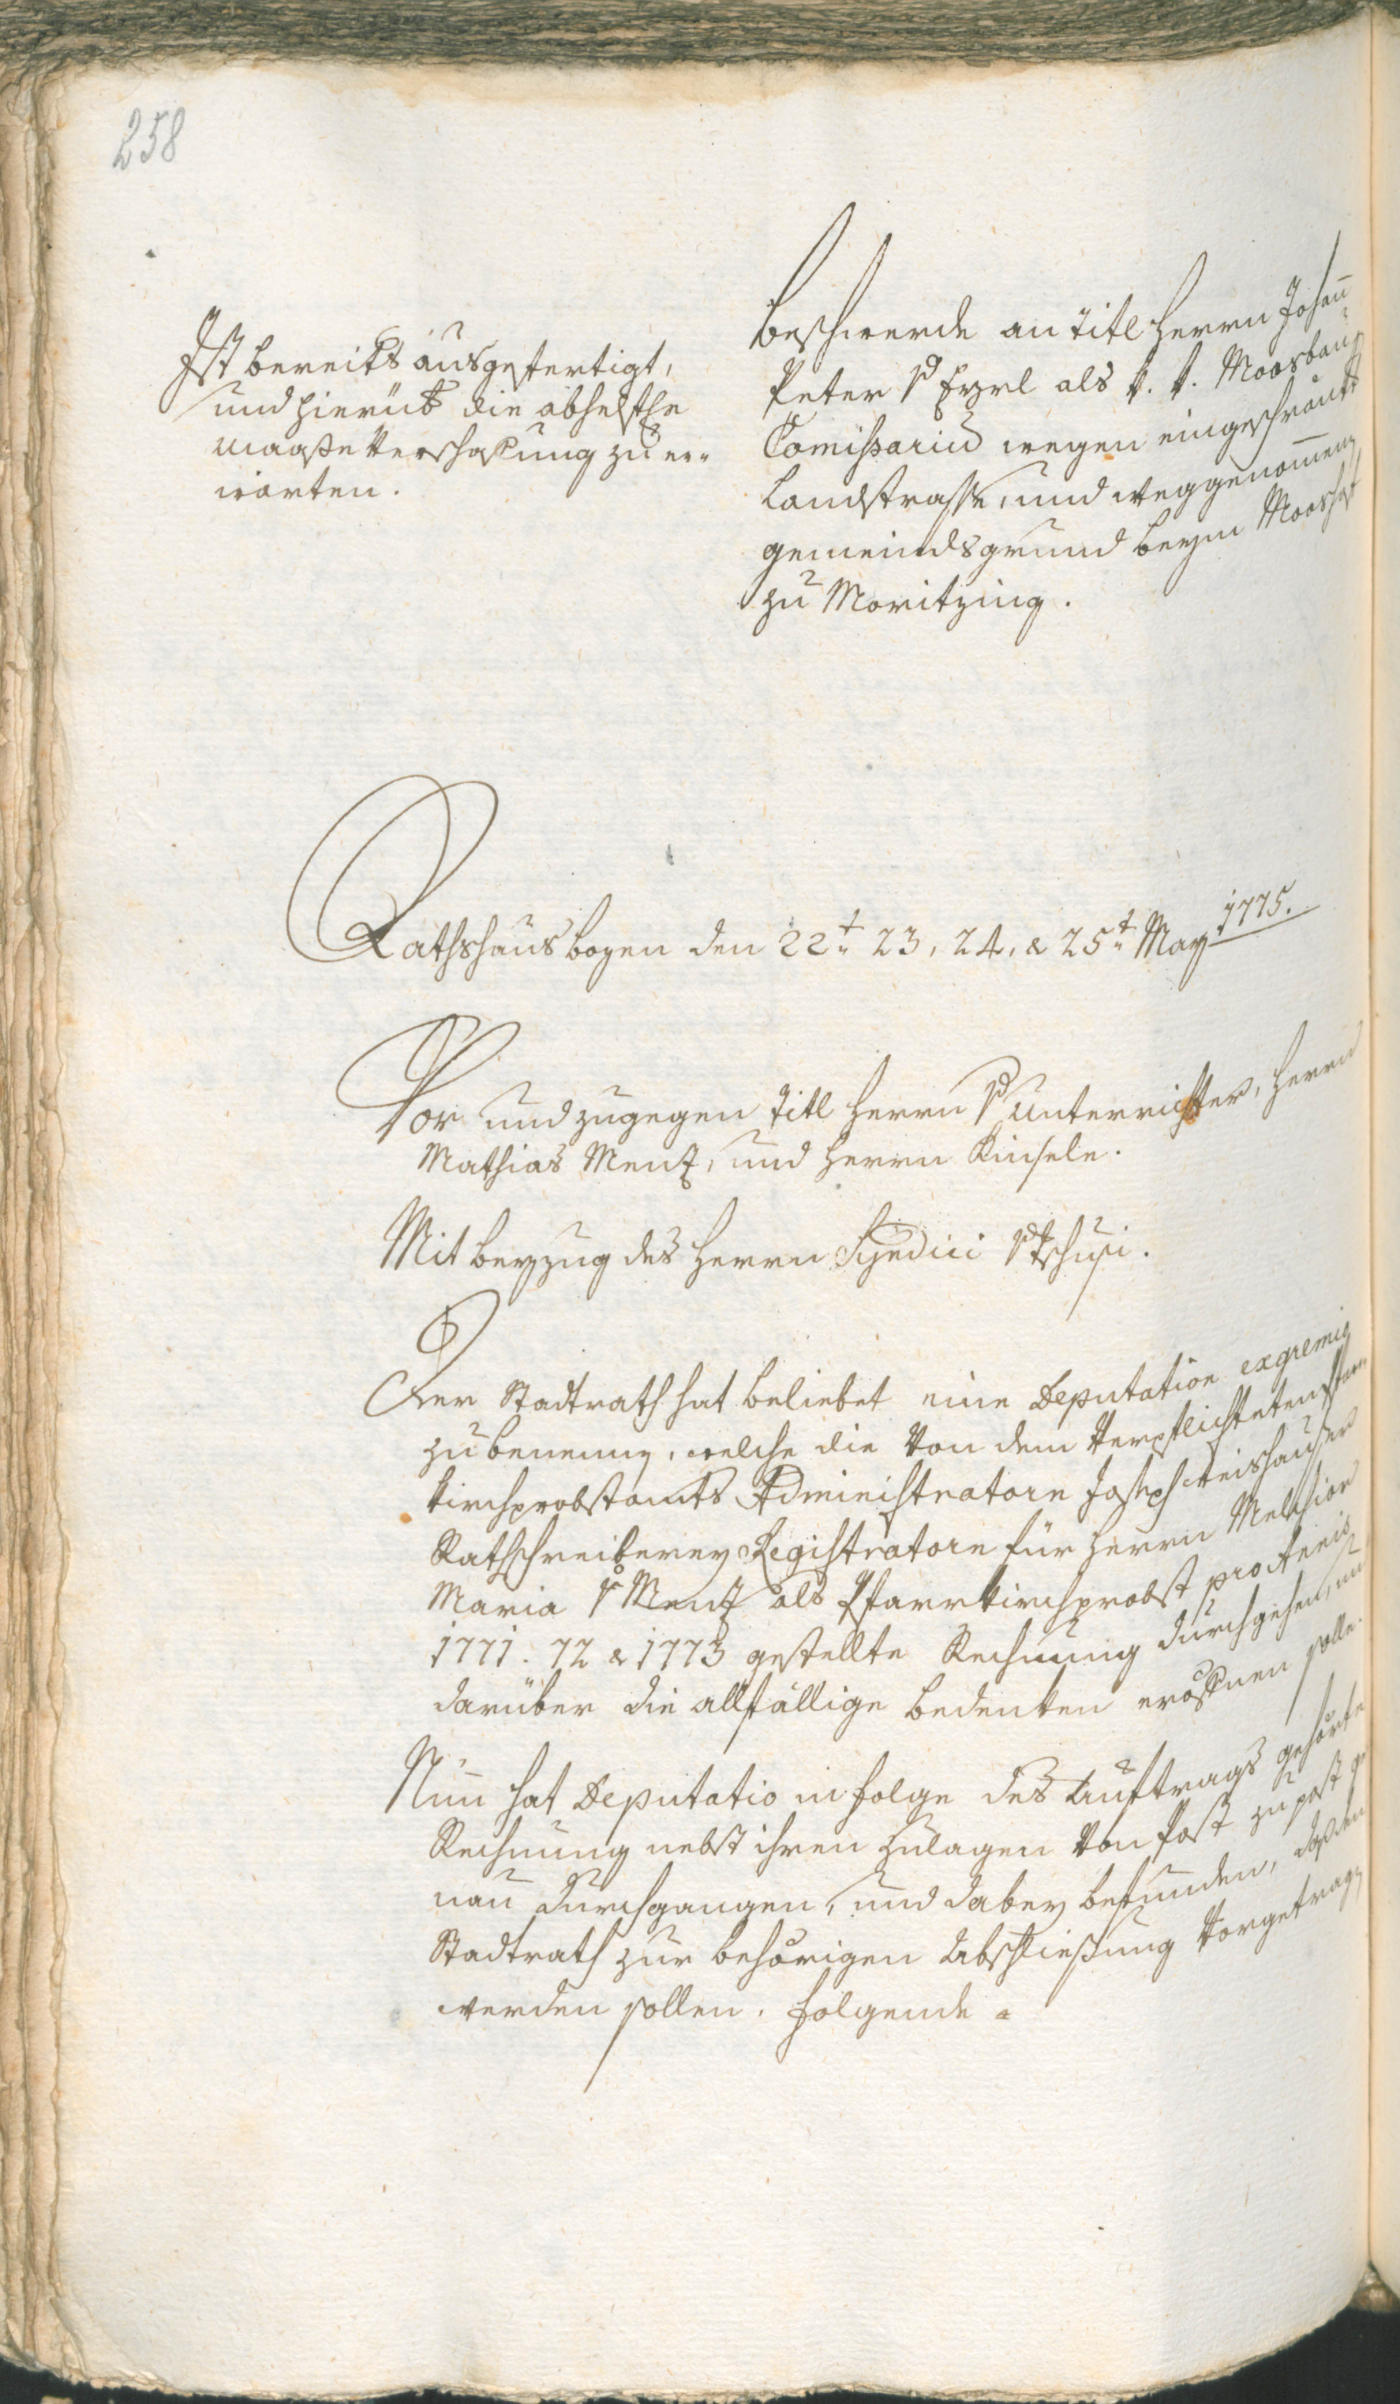 258
Ist bereits ausgefertigt,
und hierüb die abhelfche
maaße Verschaffung zu er=
warten.
Beschwerde an Titl Herrn Johann
Peter v Eyrl als k. k. Moosbau=
Comissarium wegen eingeschrankt
Landstrasse, und weggenommen
gemeindsgrund beym Mooshof
zu Moritzing.
Rathshaus bozen den 22t 23, 24, & 25t May 1775.
Vor und zugegen Titl Herrn v Unterrichter, Herrn
Mathias Menz, und Herrn Kinsele.
Mit beyzug des Herrn Syndici v Tschusi.
Der Stadtrath hat beliebet eine Deputation ex gremio
zu benennen, welche die von dem Verpflichteten Pfarr
kirchprobstamts Administratore Joseph Weishauser
Rathschreiberey Registratore für Herrn Melchior
Maria v Menz als Pfarrkirchprobst pro Annis
1771. 72 & 1773 gestellte Rechnung durchgehen, und
darüber die allfällige bedenken eröffnen solle.
Nun hat Deputatio in folge des Auftrags gehörte
Rechnung nebst ihren Zulagen von Post zu post ge
nau durchgangen, und dabey befunden, daß dem
Stadtrath zur behörigen Abschließung vorgetragen
werden sollen. folgende =